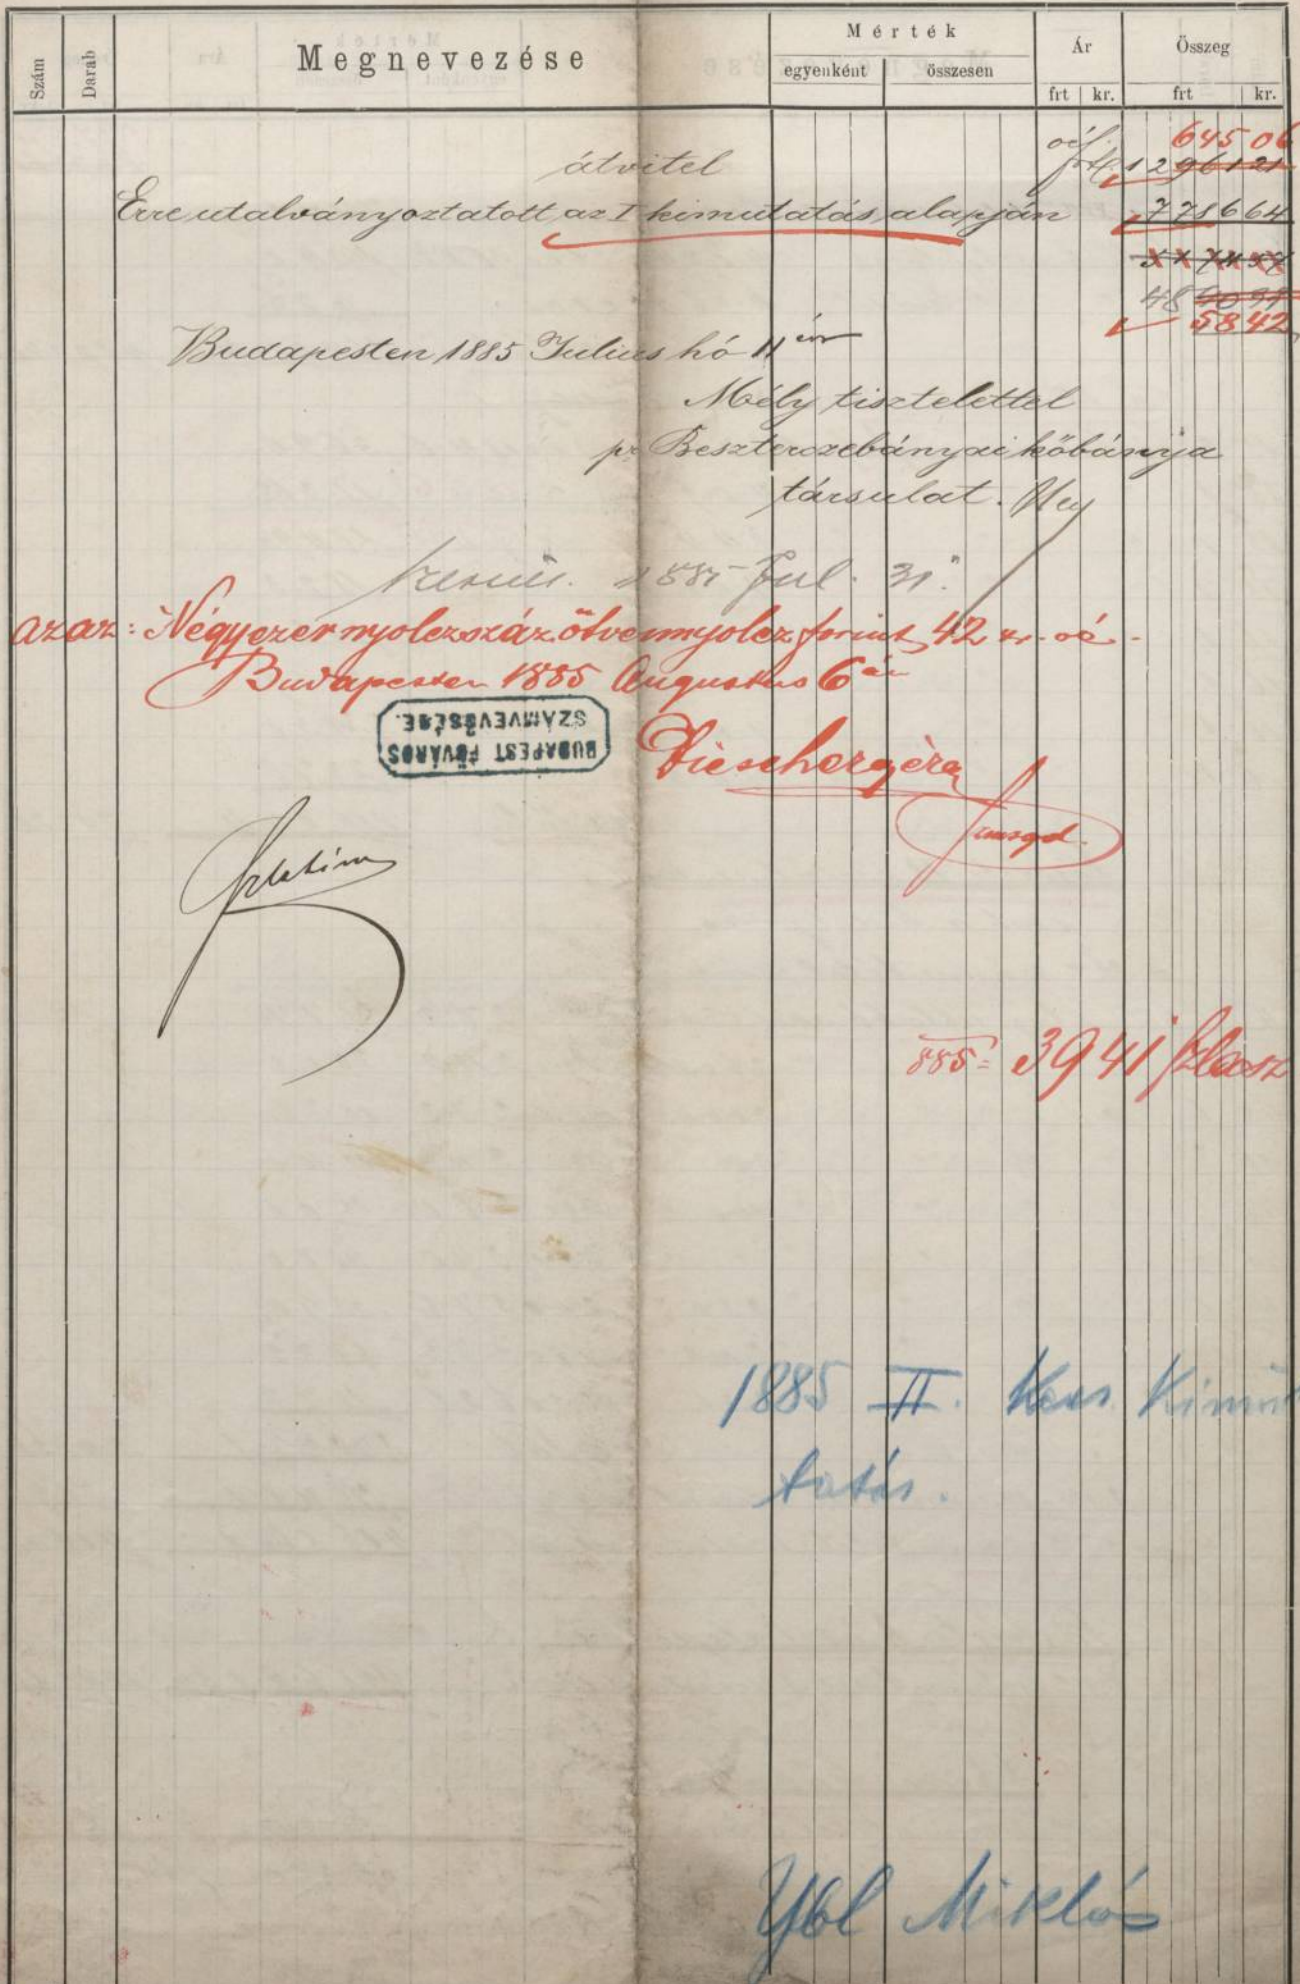 Szám Darab Megnevezése Mérték Ár Összeg
egyenként összesen
frt kr. frt kr.
645 06
átvitel oé frt 12961 21
Erre utalványoztatott az I kimutatás alapján 7786 64
5174 57
48 40 91
58 42
Budapesten 1885 Julius hó 11én
Mély tisztelettel
pr Beszterczebányai kőbánya
társulat.
1885 Jul. 31.
azaz: Négyezernyolczszázötvennyolcz forint 42 kr. oé.
Budapesten 1885 Augustus 6án
BUDAPEST FŐVÁROS
SZÁMVEVŐSÉGE.
885 = 3941
1885 II. Ker. Kimu
tatás.
Ybl Miklós